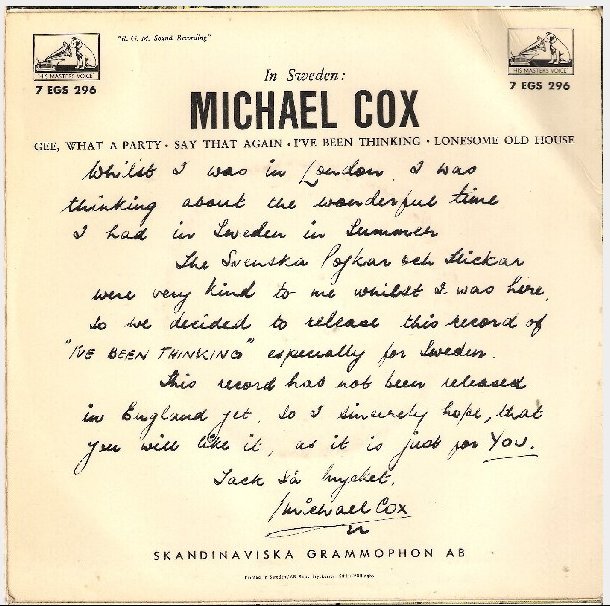 "R. G. M. Sound Recording"
HIS MASTERS VOICE
HIS MASTERS VOICE
7 EGS 296
7 EGS 296
In Sweden:
MICHAEL COX
GEE, WHAT A PARTY · SAY THAT AGAIN · I'VE BEEN THINKING · LONESOME OLD HOUSE
Whilst I was in London, I was
thinking about the wonderful time
I had in Sweden in Summer
The Svenska Pojkar och Flickar
were very kind to me whilst I was here,
so we decided to release this record of
"I'VE BEEN THINKING" especially for Sweden.
This record has not been released
in England yet, so I sincerely hope, that
you will like it, as it is just for YOU.
Tack så mycket,
Michael Cox
SKANDINAVISKA GRAMMOPHON AB
Printed in Sweden